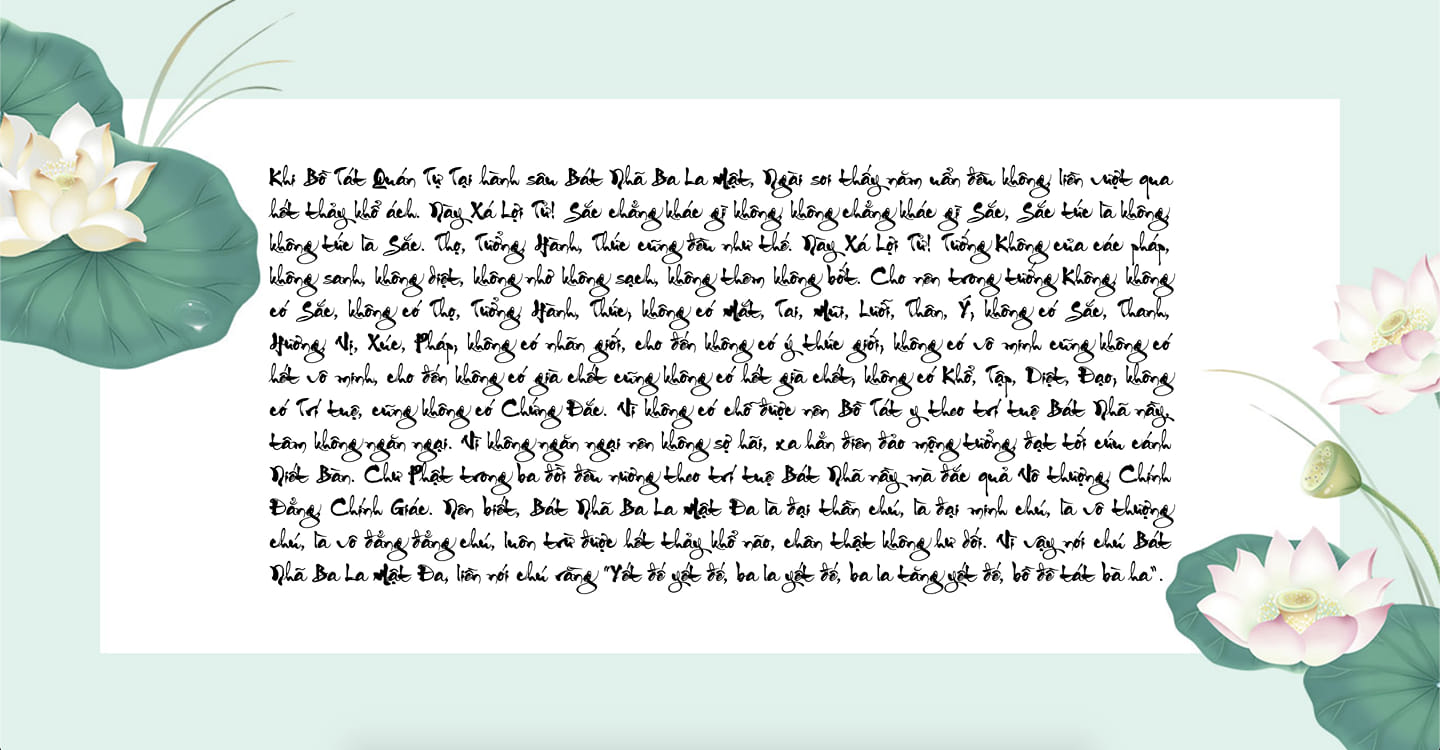 Khi Bồ Tát Quán Tự Tại hành sâu Bát Nhã Ba La Mật, Ngài soi thấy năm uẩn đều không, liền vượt qua
hết thảy khổ ách. Này Xá Lợi Tử! Sắc chẳng khác gì không, không chẳng khác gì Sắc, Sắc tức là không,
không tức là Sắc. Thọ, Tưởng, Hành, Thức cũng đều như thế. Này Xá Lợi Tử! Tướng Không của các pháp,
không sanh, không diệt, không nhơ không sạch, không thêm không bớt. Cho nên trong tướng Không, không
có Sắc, không có Thọ, Tưởng, Hành, Thức, không có Mắt, Tai, Mũi, Lưỡi, Thân, Ý, không có Sắc, Thanh,
Hương, Vị, Xúc, Pháp, không có nhãn giới, cho đến không có ý thức giới, không có vô minh cũng không có
hết vô minh, cho đến không có già chết cũng không có hết già chết, không có Khổ, Tập, Diệt, Đạo, không
có Trí tuệ, cũng không có Chứng Đắc. Vì không có chỗ được nên Bồ Tát y theo trí tuệ Bát Nhã nầy,
tâm không ngăn ngại. Vì không ngăn ngại nên không sợ hãi, xa hẳn điên đảo mộng tưởng, đạt tới cứu cánh
Niết Bàn. Chư Phật trong ba đời đều nương theo trí tuệ Bát Nhã nầy mà đắc quả Vô thượng, Chính
Đẳng, Chính Giác. Nên biết, Bát Nhã Ba La Mật Đa là đại thần chú, là đại minh chú, là vô thượng
chú, là vô đẳng đẳng chú, luôn trừ được hết thảy khổ não, chân thật không hư dối. Vì vậy nói chú Bát
Nhã Ba La Mật Đa, liền nói chú rằng "Yết đế yết đế, ba la yết đế, ba la tăng yết đế, bồ đề tát bà ha".